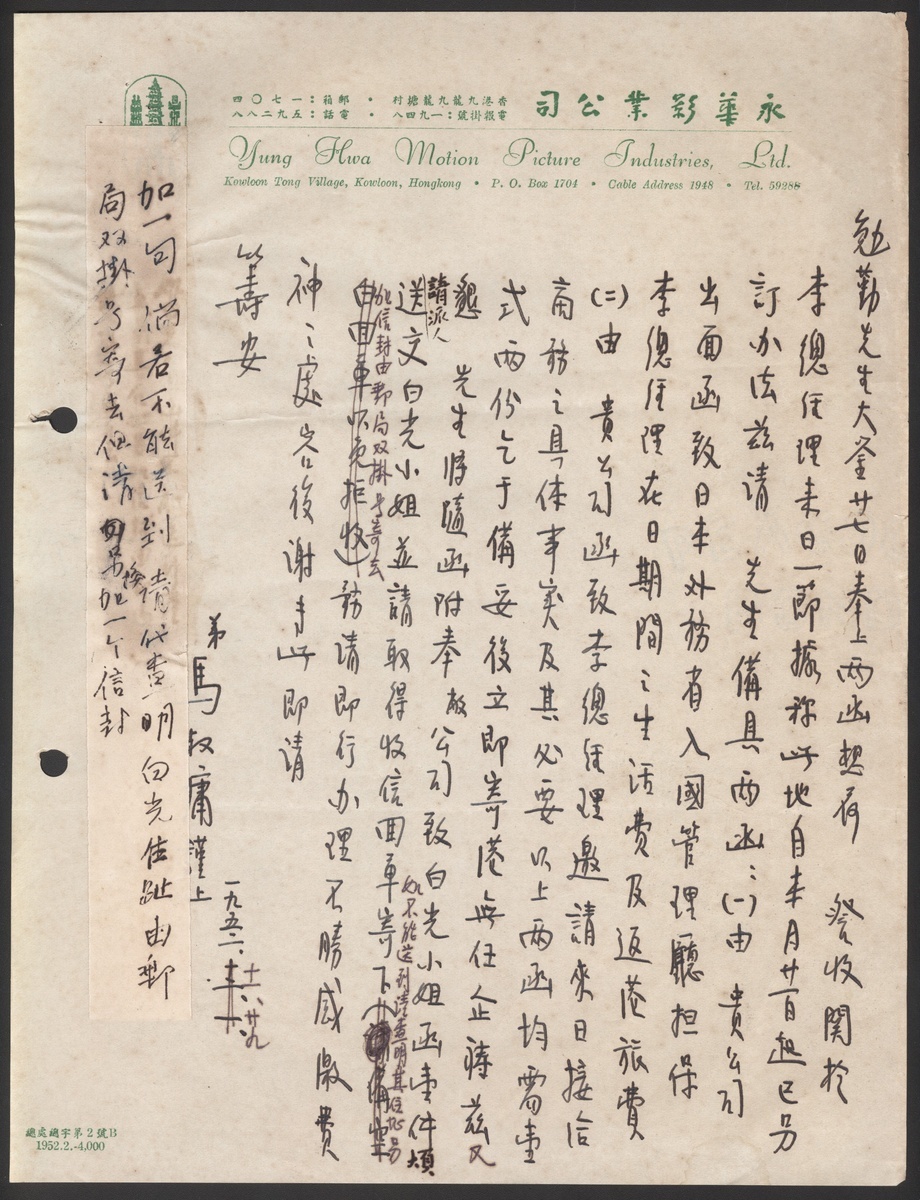 永華影業公司
香港九龍九龍塘村 · 郵箱：一七〇四
電報掛號：一九四八 · 電話：五九二八八
Yung Hwa Motion Picture Industries, Ltd.
Kowloon Tong Village, Kowloon, Hongkong • P. O. Box 1704 • Cable Address 1948 • Tel. 59288
勉勤先生大鉴廿七日奉上两函想存 詧收關於
李總经理来日一節據称此地自本月廿一日起已另
訂办法兹請 先生備具两函：(一)由 貴公司
出面函致日本外務省入國管理廳担保
李總经理在日期間之生活費及返港旅費
(二)由 貴公司函致李總经理邀請來日接洽
商務之具体事实及其必要以上两函均需壹
式两份乞于備妥後立即寄港無任企禱兹又
懇 先生將隨函附奉敝公司致白光小姐函壹件煩
請派人
送交白光小姐並請取得收信回单寄下
如不能送到請查明其住址另
加信封由郵局双掛号寄去
務請即行办理不勝感激費
神之處容後谢す此即請
籌安
弟馬叙庸謹上
一九五二、十、廿九
加一句 倘若不能送到 請代查明白光住趾由郵
局双掛号寄去但請 换加一个信封
總處總字第2號B
1952.2.-4,000